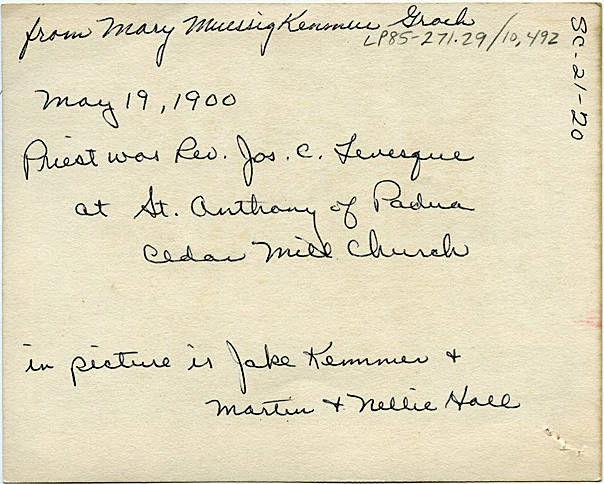 from Mary Muessig Kemmer Groch
LP85-271.29/10,492
SC-21-20
May 19, 1900
Priest was Rev. Jos. C. Levesque
at St. Anthony of Padua
Cedar Mill Church
in picture is Jake Kemmer +
Martin + Nellie Hall